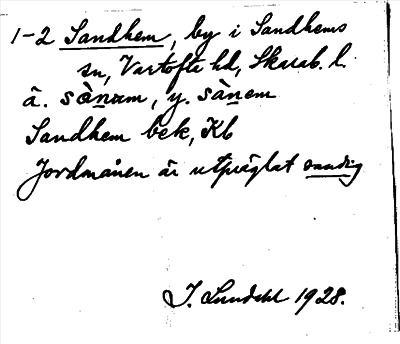 1-2 Sandhem, by i Sandhems
sn, Vartofta hd, Skarab. l.
ä. sànam, y. sànem
Sandhem bek, Kb
Jordmånen är utpräglat sandig
I. Lundahl 1928.